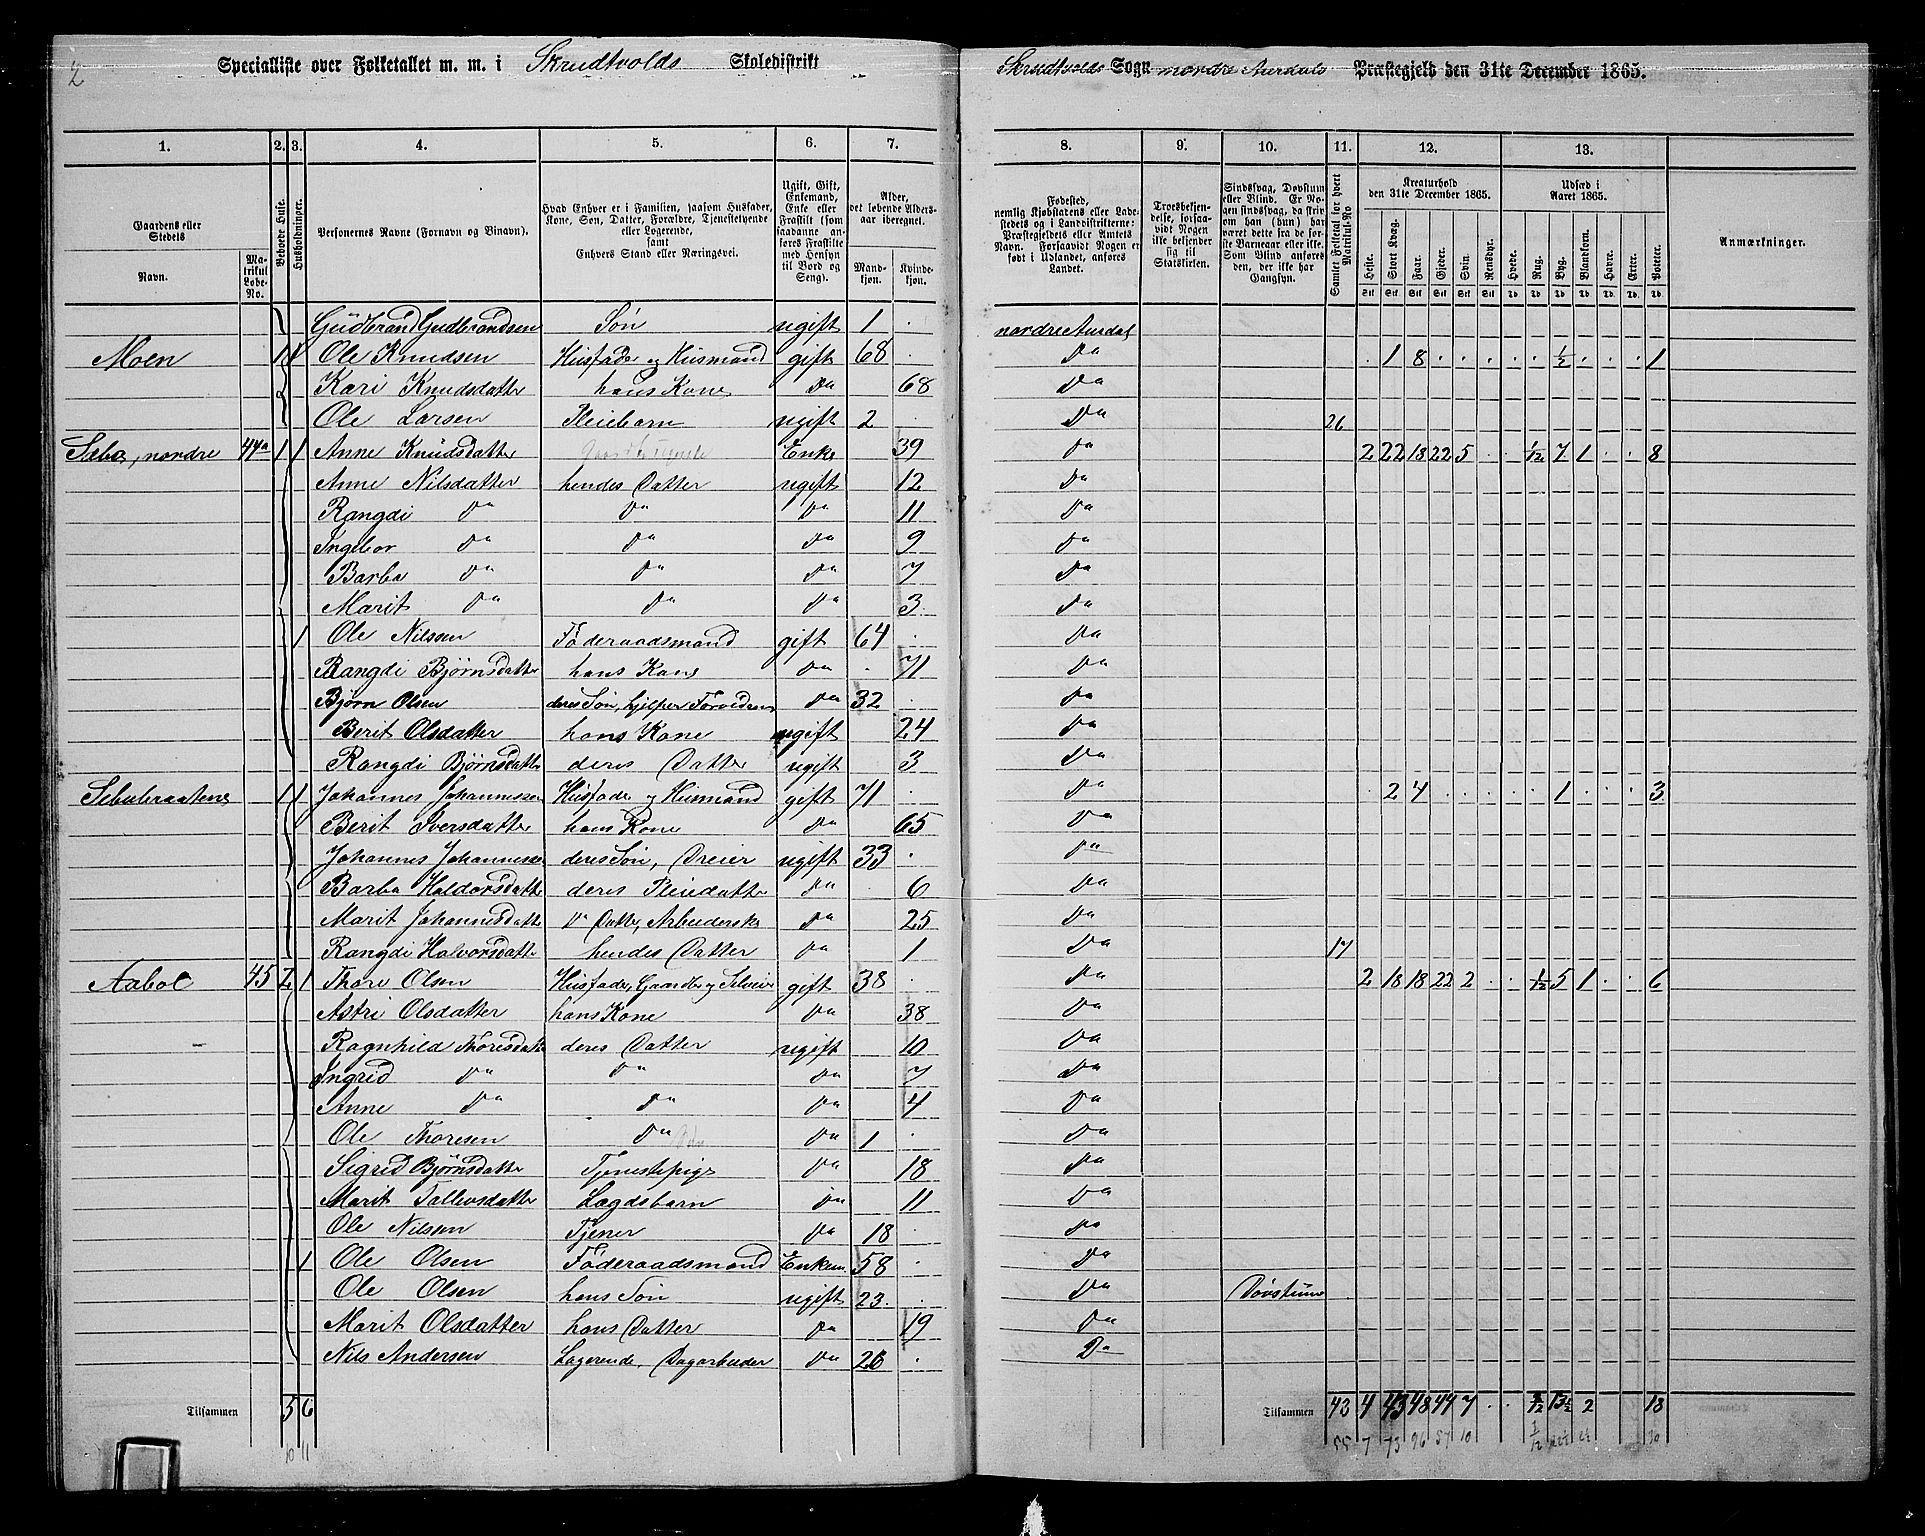 2
Specialliste over Folketallet m. m. i Skrudtvolds Skoledistrikt
Skrudtvolds Sogn nordre Aurdals Præstegjeld den 31te December 1865.
1. 2. 3. 4. 5. 6. 7. 8. 9. 10. 11. 12. 13.
Gaardens eller Stedets
Navn.
Matrikul Løbe-No.
Beboede Huse.
Husholdninger.
Personernes Navne (Fornavn og Binavn).
Hvad Enhver er i Familien, saasom Husfader, Kone, Søn, Datter, Forældre, Tjenestetyende eller Logerende, samt Enhvers Stand eller Næringsvei.
Ugift, Gift, Enkemand, Enke eller Fraskilt (som saadanne anføres Fraskilte med Hensyn til Bord og Seng).
Alder, det løbende Alders-aar iberegnet.
Mand-kjøn.
Kvinde-kjøn.
Fødested, nemlig Kjøbstadens eller Ladestedets og i Landdistrikterne: Præstegjeldets eller Amtets Navn. Forsaavidt Nogen er født i Udlandet, anføres Landet.
Troesbekjendelse, forsaavidt Nogen ikke bekjender sig til Statskirken.
Sindssvag, Døvstum eller Blind. Er Nogen sindssvag, da skrives om han (hun) har været dette fra de første Barneaar eller ikke. Som Blind anføres den, der ikke har Gangsyn.
Samlet Folketal for hvert Matrikul-No
Kreaturhold den 31te December 1865.
Heste. Stort Kvæg. Faar. Gjeder. Svin. Rensdyr.
Udsæd i Aaret 1865.
Hvede. Rug. Byg. Blandkorn. Havre. Erter. Poteter.
Anmærkninger.
Gudbrand Gudbrandsen Søn ugift 1 nordre Aurdal
Moen 1 1 Ole Knudsen Husfader og Husmand gift 68 Do 1 8 ½ 1
Kari Knudsdatter hans Kone Do 68 Do
Ole Larsen Pleiebarn ugift 2 Do 26
Sæbo, nordre 44a 1 1 Anne Knudsdatter Enke 39 Do 2 22 18 22 5 ½ 7 1 8
Anne Nilsdatter hendes Datter ugift 12 Do
Rangdi Do Do Do 11 Do
Ingebor Do Do Do 9 Do
Barbo Do Do Do 7 Do
Marit Do Do Do 3 Do
1 Ole Nilssen Føderaadsmand gift 64 Do
Rangdi Bjørnsdatter hans Kone Do 71 Do
Bjørn Olsen deres Søn, hjelper Forældrene Do 32 Do
Berit Olsdatter hans Kone ugift 24 Do
Rangdi Bjørnsdatter deres Datter ugift 3 Do
Sebubraatene 1 1 Johannes Johannessen Husfader og Husmand gift 71 Do 2 4 1 3
Berit Iversdatter hans Kone Do 65 Do
Johannes Johannessen deres Søn, Dreier ugift 33 Do
Barbo Haldorsdatter deres Pleiedatter Do 6 Do
Marit Johannesdatter Do Datter, Arbeiderske Do 25 Do
Rangdi Halvorsdatter hendes Datter Do 1 Do 17
Aabol 45 2 1 Thore Olsen Husfader, Gaardbr og Selveier gift 38 Do 2 18 18 22 2 ½ 5 1 6
Astri Olsdatter hans Kone Do 38 Do
Ragnhild Thoresdatter deres Datter ugift 10 Do
Ingrid Do Do Do 7 Do
Anne Do Do Do 4 Do
Ole Thoresen Do Do 1 Do
Sigrid Bjørnsdatter Tjenestepige Do 18 Do
Marit Tollevsdatter Lægdsbarn Do 11 Do
Ole Nilsen Tjener Do 18 Do
1 Ole Olsen Føderaadsmand Enkem. 58 Do
Ole Olsen hans Søn ugift 23 Do Døvstum
Marit Olsdatter hans Datter Do 19 Do
Nils Andersen Logerende, Dagarbeider Do 26 Do
Tilsammen 5 6 Tilsammen 43 4 43 48 44 7 13½ 2 18
10 11 55 7 73 96 57 10